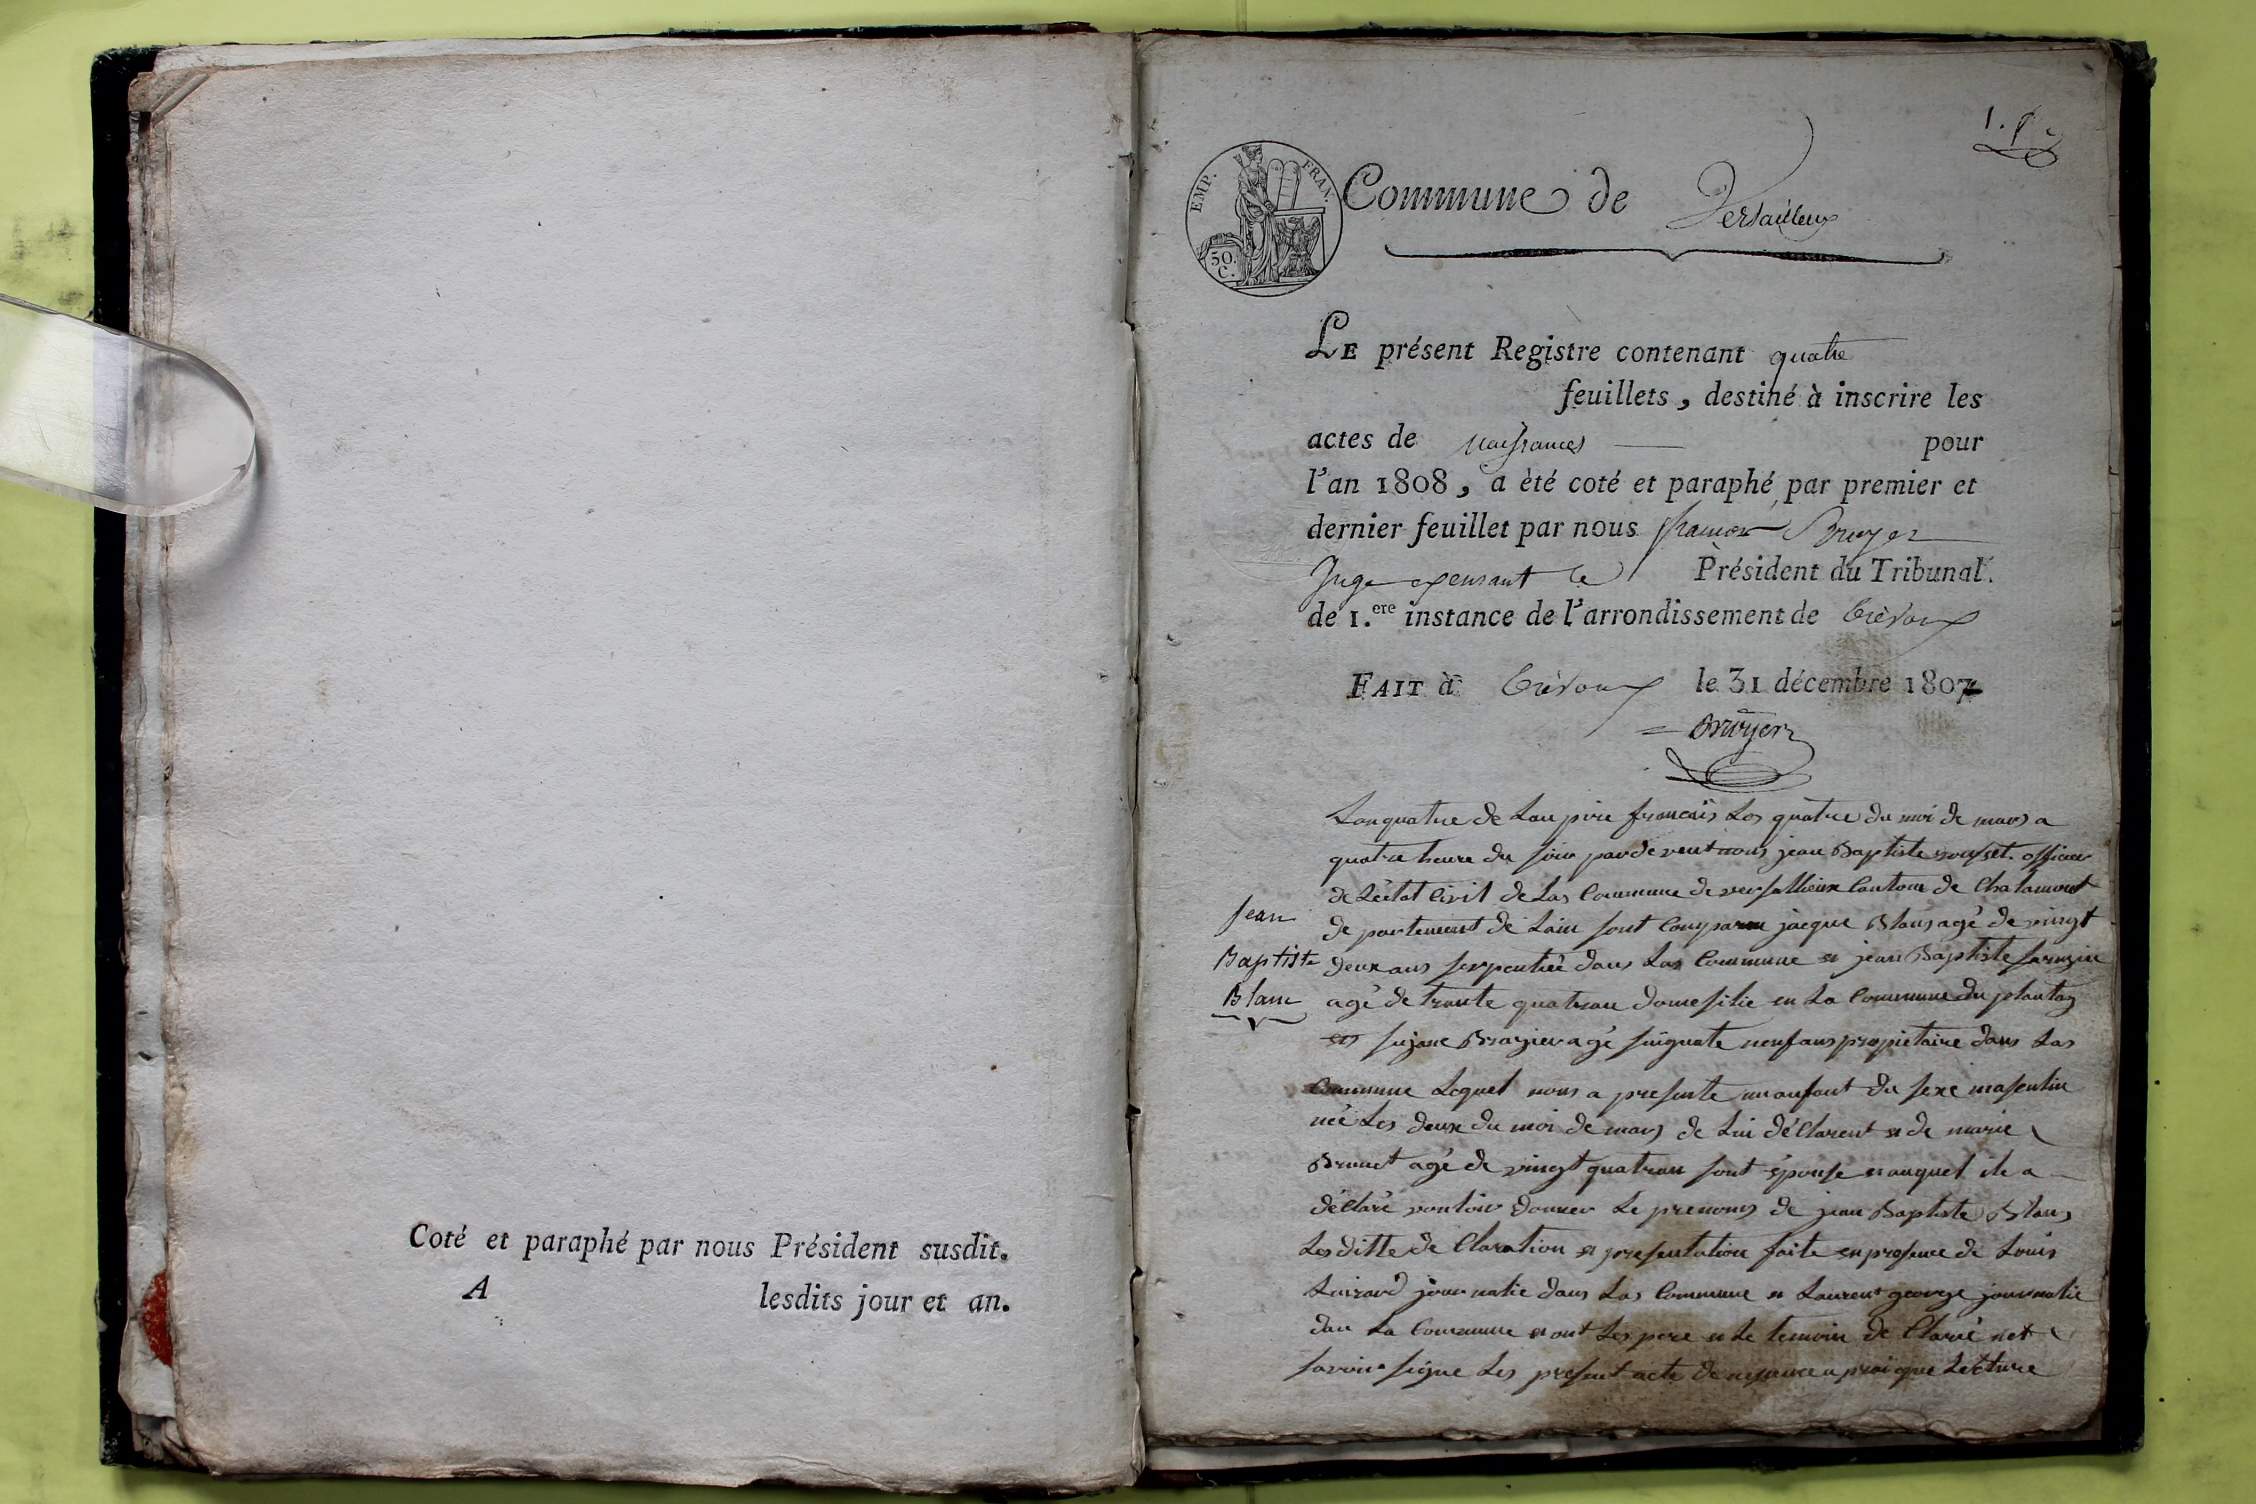 Coté et paraphé par nous Président susdit.
A lesdits jour et an.
1.
EMP. FRAN.
50.
C.
Commune de Versailleux
LE présent Registre contenant quatre
feuillets, destiné à inscrire les
actes de naissances pour
l'an 1808, a èté coté et paraphé par premier et
dernier feuillet par nous françois Bruyer
Juge pensant le Président du Tribunal
de 1.ere instance de l'arrondissement de trévoux
FAIT à trévoux le 31 décembre 1807
Bruyer
Jean
Baptiste
Blanc
Lanquatre de Lanpire francais Les quatre du moi de mars a
quatre heure du soir pardevent nous jean Baptiste rousset officier
de Léetat Civil de Las Commune de versallieux Canton de Chalamont
de partement de Lain sont Comparu jacque Blanc agé de vingt
deux ans serpentiée dans Las Commune et jean Baptiste sarazin
agé de trante quatran domesilie en La Commune du plantay
et Brazier agé sinquate neuf ans propietaire dans Las
Commune Lequel nous a presente un anfant du sexe masculin
née Les deux du moi de mars de Lui déClarent et de marie
Brunet agé de vingt quatran sont épouse et auquel ile a
déClaré vouloir donner Le prenoms de jean Baptiste Blanc
Las ditte de Claration et presentation faite en presence de Louis
Luirard journalié dans Las Commune et Laurent george journalié
dan La Commune et ont Les pere et Le temoin de Claré net
savoir signe Les present acte de naisance aprai que Lecture